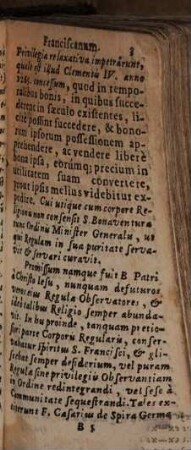 Franciscanum. 8
Privilegia relaxativa impetrârunt,
quale est illud Clementis IV. anno
concessum, quod in tempo-
ralibus bonis, in quibus succe-
derent in sæculo existentes, li-
cite possint succedere, & bono-
rum ipsorum possessionem ap-
prehendere, ac vendere liberè
bona ipsa, eorúmq; precium in
utilitatem suam convertere,
prout ipsis melius videbitur ex-
pedire. Cui utique cum corpore Re-
ligionis non consensit S. Bonaventura
tunc Ordinis Minister Generalis, us
qui Regulam in sua puritate serva-
vit & servari curavit.
Promissum namque fuit B. Patri
à Christo Iesu, nunquam defuturos
Regula Observatores, &
Religio semper abunda-
vit. In eu proinde, tanquam pretio-
parte Corporu Regularis, conser-
vabatur spiritus S. Francisci, & gli-
semper desiderium, vel puram
Regula sine privilegiis Observantiam
in Ordine redintegrandi, vel sese à
Communitate sequestrandi. Tales ex-
titerunt F. Casarius de Spira Germa-
B 5